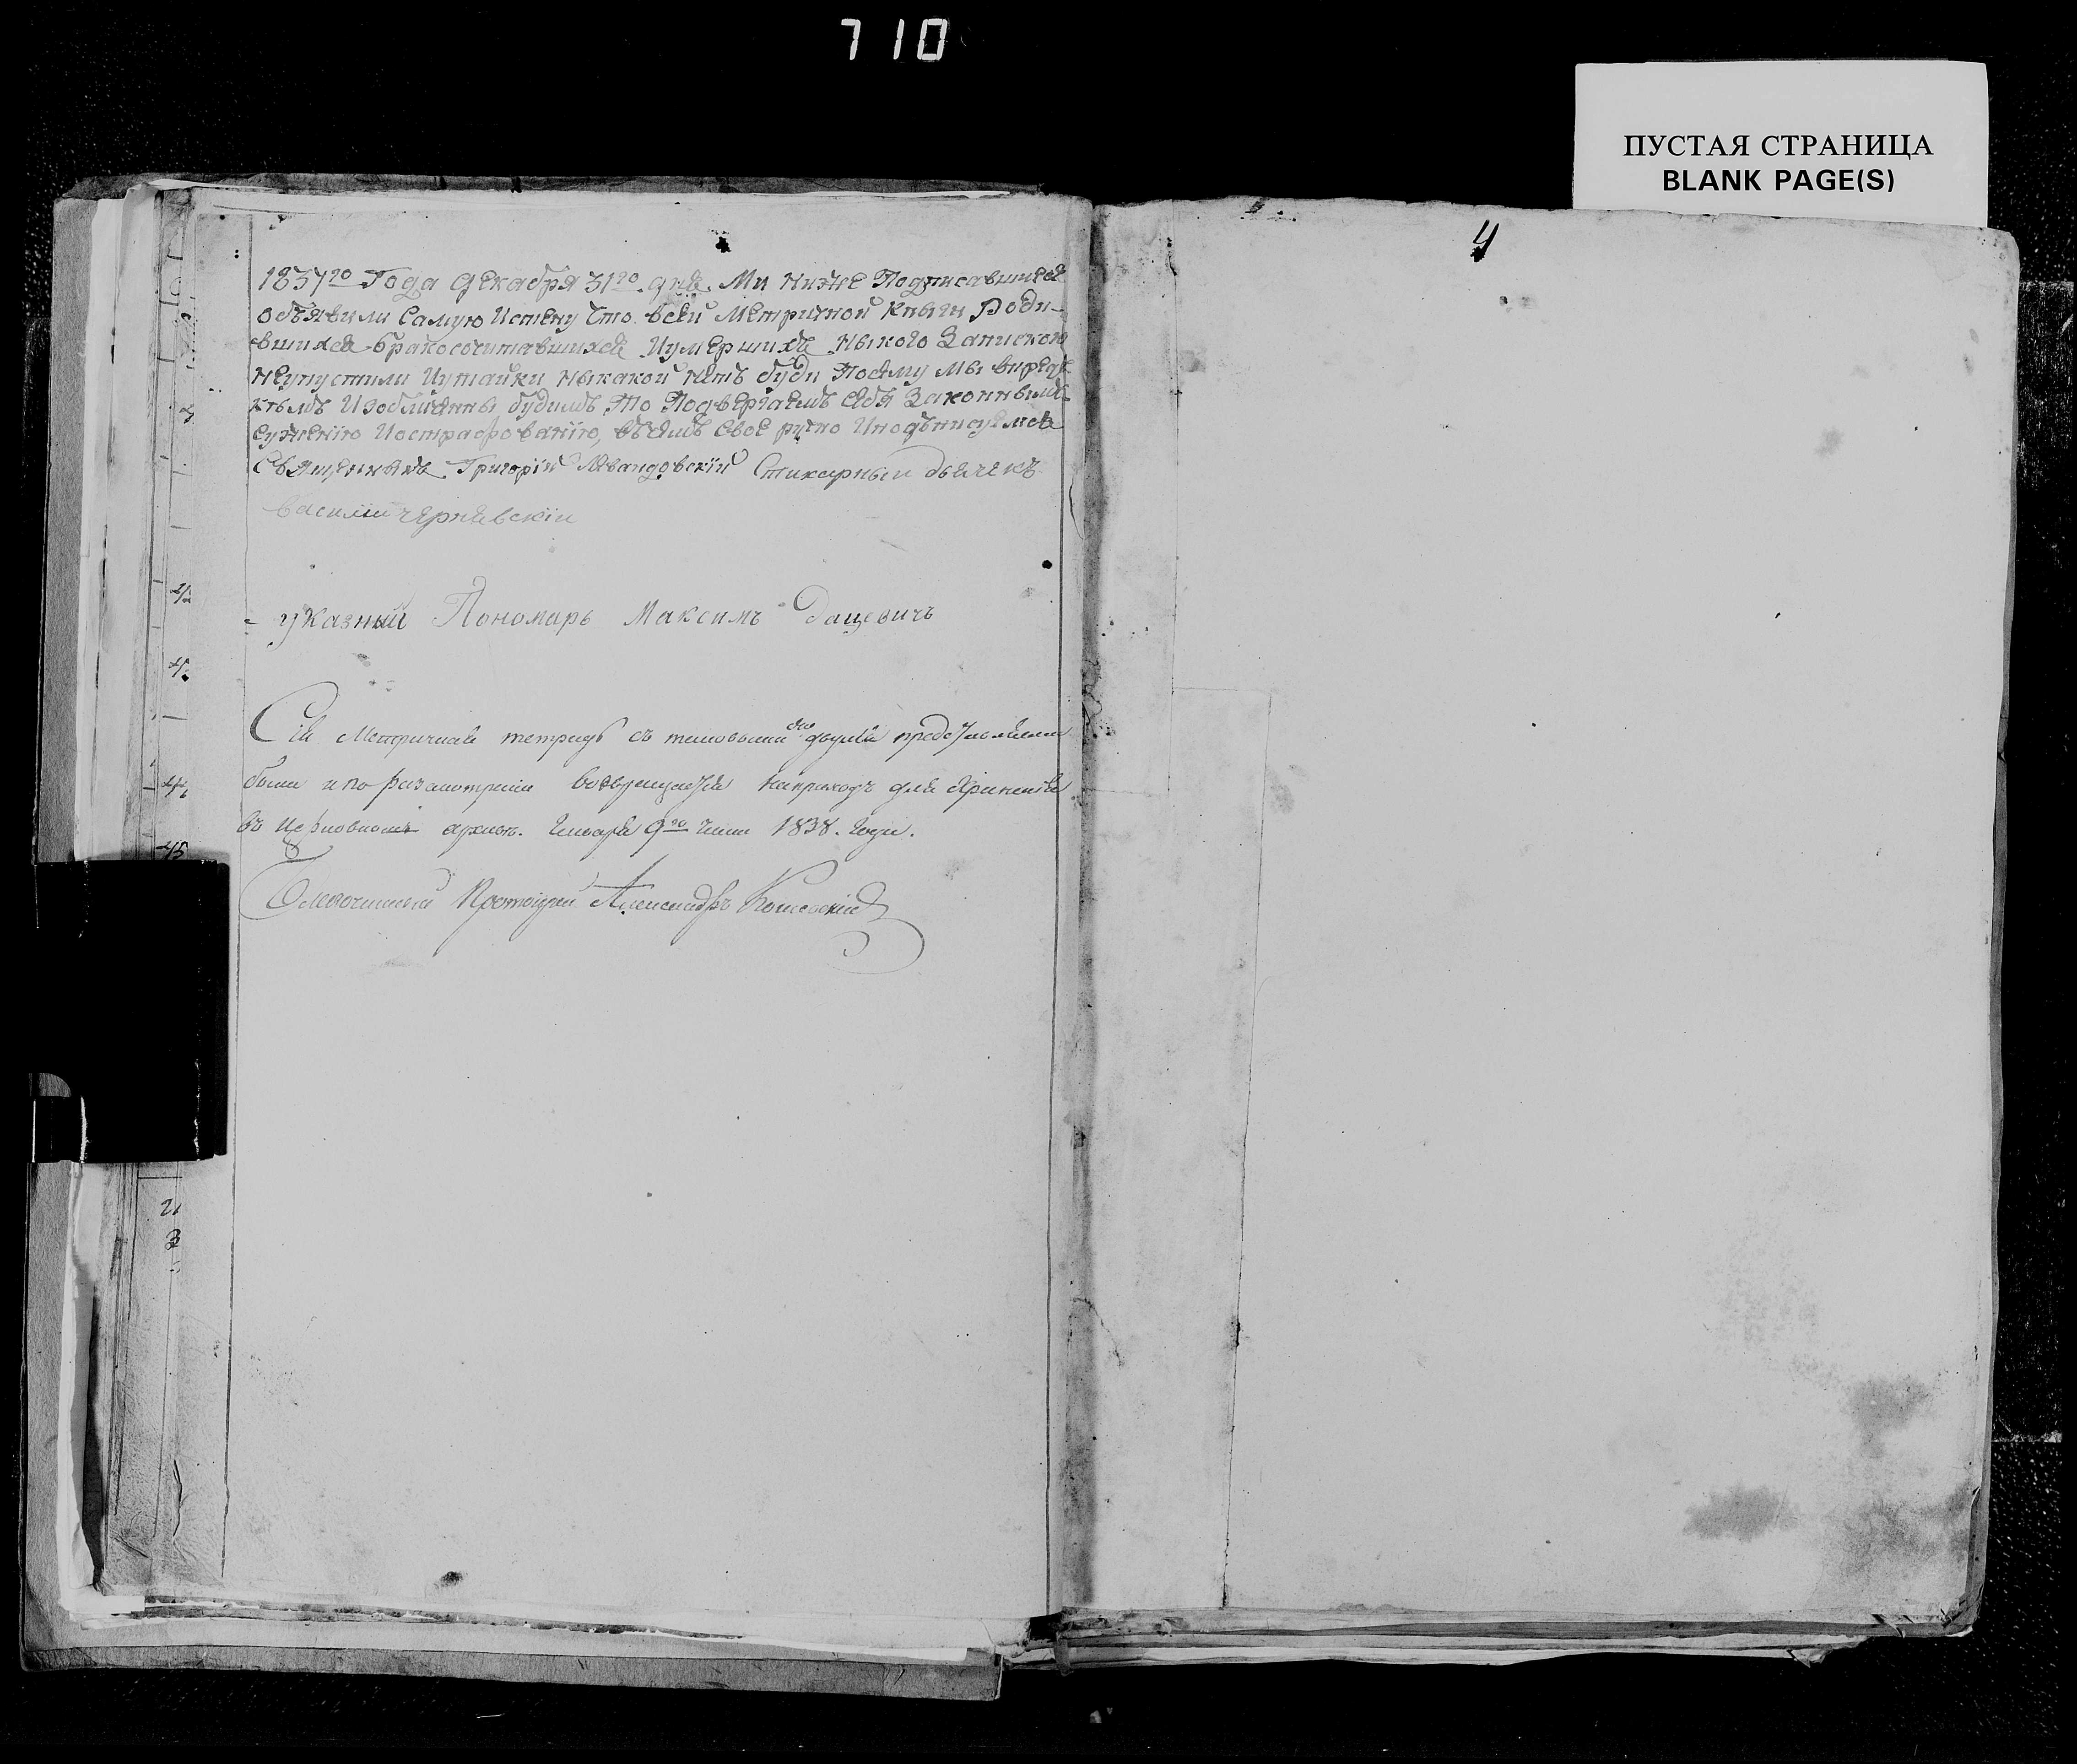 710
ПУСТАЯ СТРАНИЦА
BLANK PAGE(S)
1837го Года Декабря 31го дня. Ми ниже Подписавшиеся
объявили Самую Истену Что всей Метричной Книги Роди-
вшихся бракосочитавшихся Иумершихъ ныкого Запискою
неупустили Иутайки ныкакой нетъ буди Поэму мы впред
Изобличены будимъ То Подвергаемъ себя Законнымъ
суждению Иострафованїю, въ чемъ свое ручно Иподъписуемся
Священникъ Григорїй Левандовскїй Стихарный дьячекъ
василий чернявскїи
указный Пономарь Максимъ Дацевичъ
Сія Метричная тетрадь съ таковыми двумя представлена
была и по разсмотреніи возвращается наприходъ для храненія
въ Церковномъ архиве. Января 9го 1838. года.
Благочинный Протоіерей Александръ
4